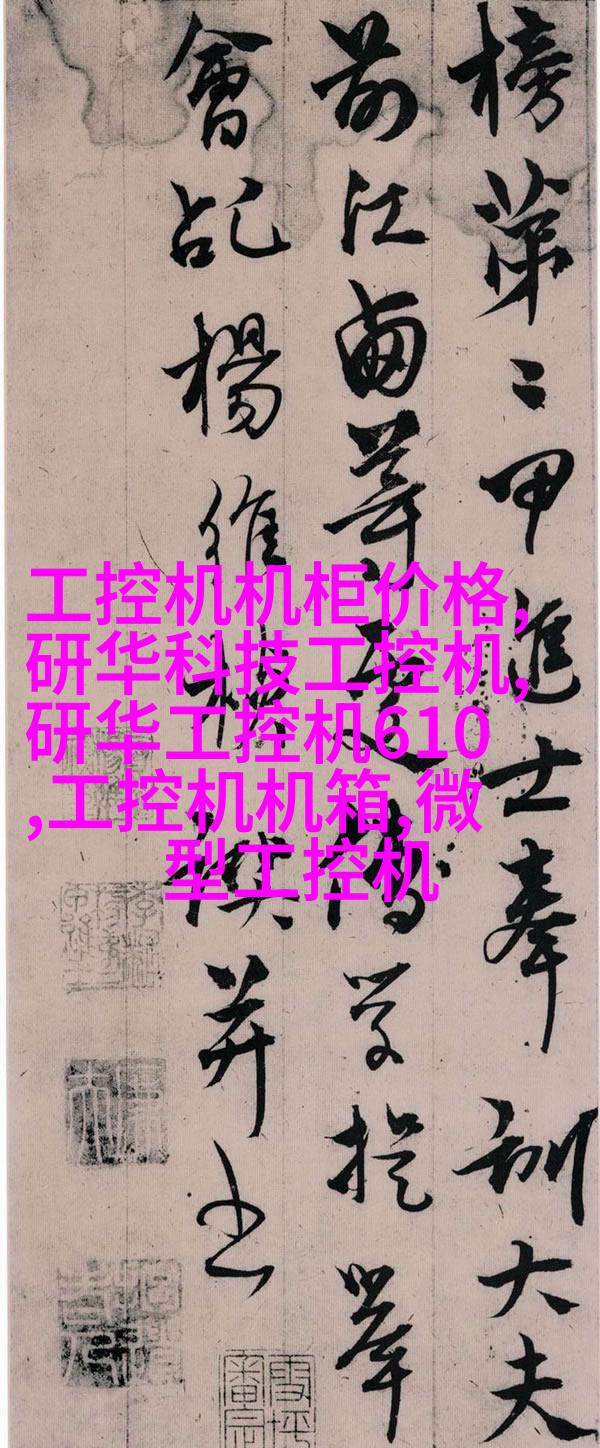 榜第二甲進士奉訓大夫
前江西等處儒學提舉
會乩楊維楨譔并書
工控机机柜价格,
研华科技工控机,
研华工控机610
,工控机机箱,微
型工控机